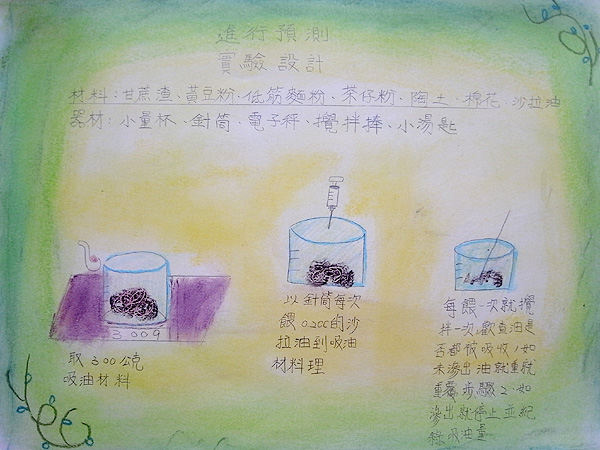 進行預測
實驗設計
材料:甘蔗渣、黃豆粉、低筋麵粉、茶仔粉、陶土、棉花、沙拉油
器材:小量杯、針筒、電子秤、攪拌捧、小湯匙
3.00g
取3.00公克
吸油材料
以針筒每次
餵0.2cc的沙
拉油到吸油
材料理
每餵一次就攪
拌一次,觀查油是
否都被吸收,如
未滲出油就重就
重覆步驟2、如
滲出就停止並紀
錄吸油量